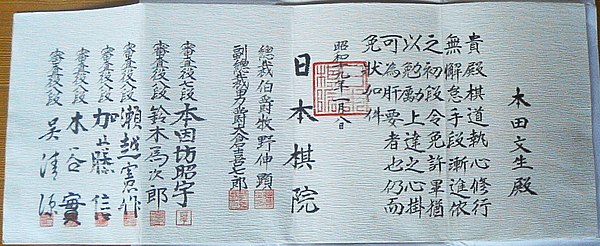 木田文生殿
貴殿棋道執心修行
無解怠手段漸進依
之初段令免許畢猶
以勉勵上達之心掛
可為肝要者也仍而
免状如件
昭和十九年
日本棋院
總裁伯爵牧野伸顕
副總裁男爵大倉喜七郎
審査役七段本因坊昭宇
審査役八段鈴木為次郎
審査役八段瀬越憲作
審査役八段加藤信
審査役八段木谷實
審査役八段呉清源